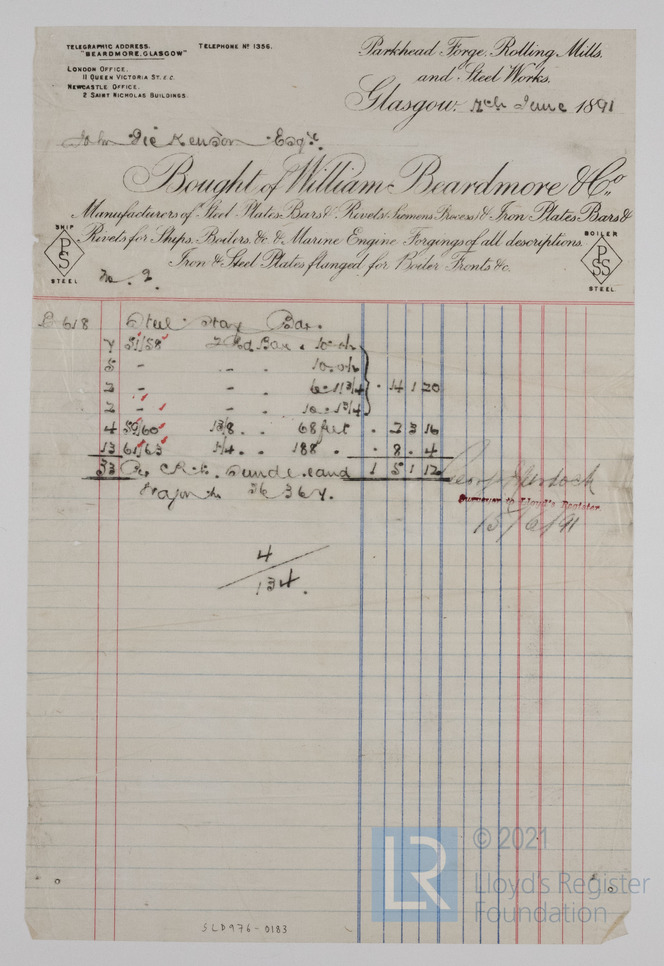 TELEGRAPHIC ADDRESS. TELEPHONE Nº 1356.
"BEARDMORE, GLASGOW"
LONDON OFFICE.
11 QUEEN VICTORIA ST. E.C.
NEWCASTLE OFFICE.
2 SAINT NICHOLAS BUILDINGS.
Parkhead Forge, Rolling Mills,
and Steel Works,
Glasgow, June 1891
John Dickenson Esqre.
Bought of William Beardmore & Co.,
Manufacturers of Steel Plates Bars & Rivets (Siemens Process) & Iron Plates Bars &
Rivets for Ships, Boilers, &c. & Marine Engine Forgings of all descriptions.
Iron & Steel Plates flanged for Boiler Fronts &c.
SHIP
PS
STEEL
BOILER
PSS
STEEL
618 Steel Stay Bar.
51/58 Rd Bar
14 1 20
4 59/60 13/8 68 feet 2 3 16
13 61/63 188 8 4
33 Sunderland 1 5 1 12
Surveyor to Lloyd's Register
15/6/91
4
134.
© 2021
LR
Lloyd's Register
Foundation
SLD976-0183